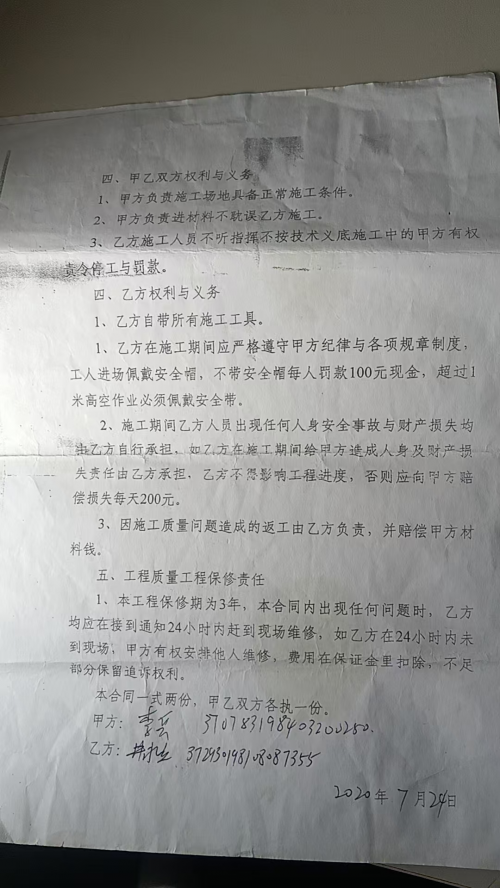 四、甲乙双方权利与义务
1、甲方负责施工场地具备正常施工条件。
2、甲方负责进材料不耽误乙方施工。
3、乙方施工人员不听指挥不按技术义底施工中的甲方有权
责令停工与罚款。
四、乙方权利与义务
1、乙方自带所有施工工具。
1、乙方在施工期间应严格遵守甲方纪律与各项规章制度，
工人进场佩戴安全帽，不带安全帽每人罚款100元现金，超过1
米高空作业必须佩戴安全带。
2、施工期间乙方人员出现任何人身安全事故与财产损失均
由乙方自行承担，如乙方在施工期间给甲方造成人身及财产损
失责任由乙方承担，乙方不得影响工程进度，否则应向甲方赔
偿损失每天200元。
3、因施工质量问题造成的返工由乙方负责，并赔偿甲方材
料钱。
五、工程质量工程保修责任
1、本工程保修期为3年，本合同内出现任何问题时，乙方
均应在接到通知24小时内赶到现场维修，如乙方在24小时内未
到现场，甲方有权安排他人维修，费用在保证金里扣除，不足
部分保留追诉权利。
本合同一式两份，甲乙双方各执一份。
甲方： 370783198403200250
乙方： 372930198108087355
2020年7月24日